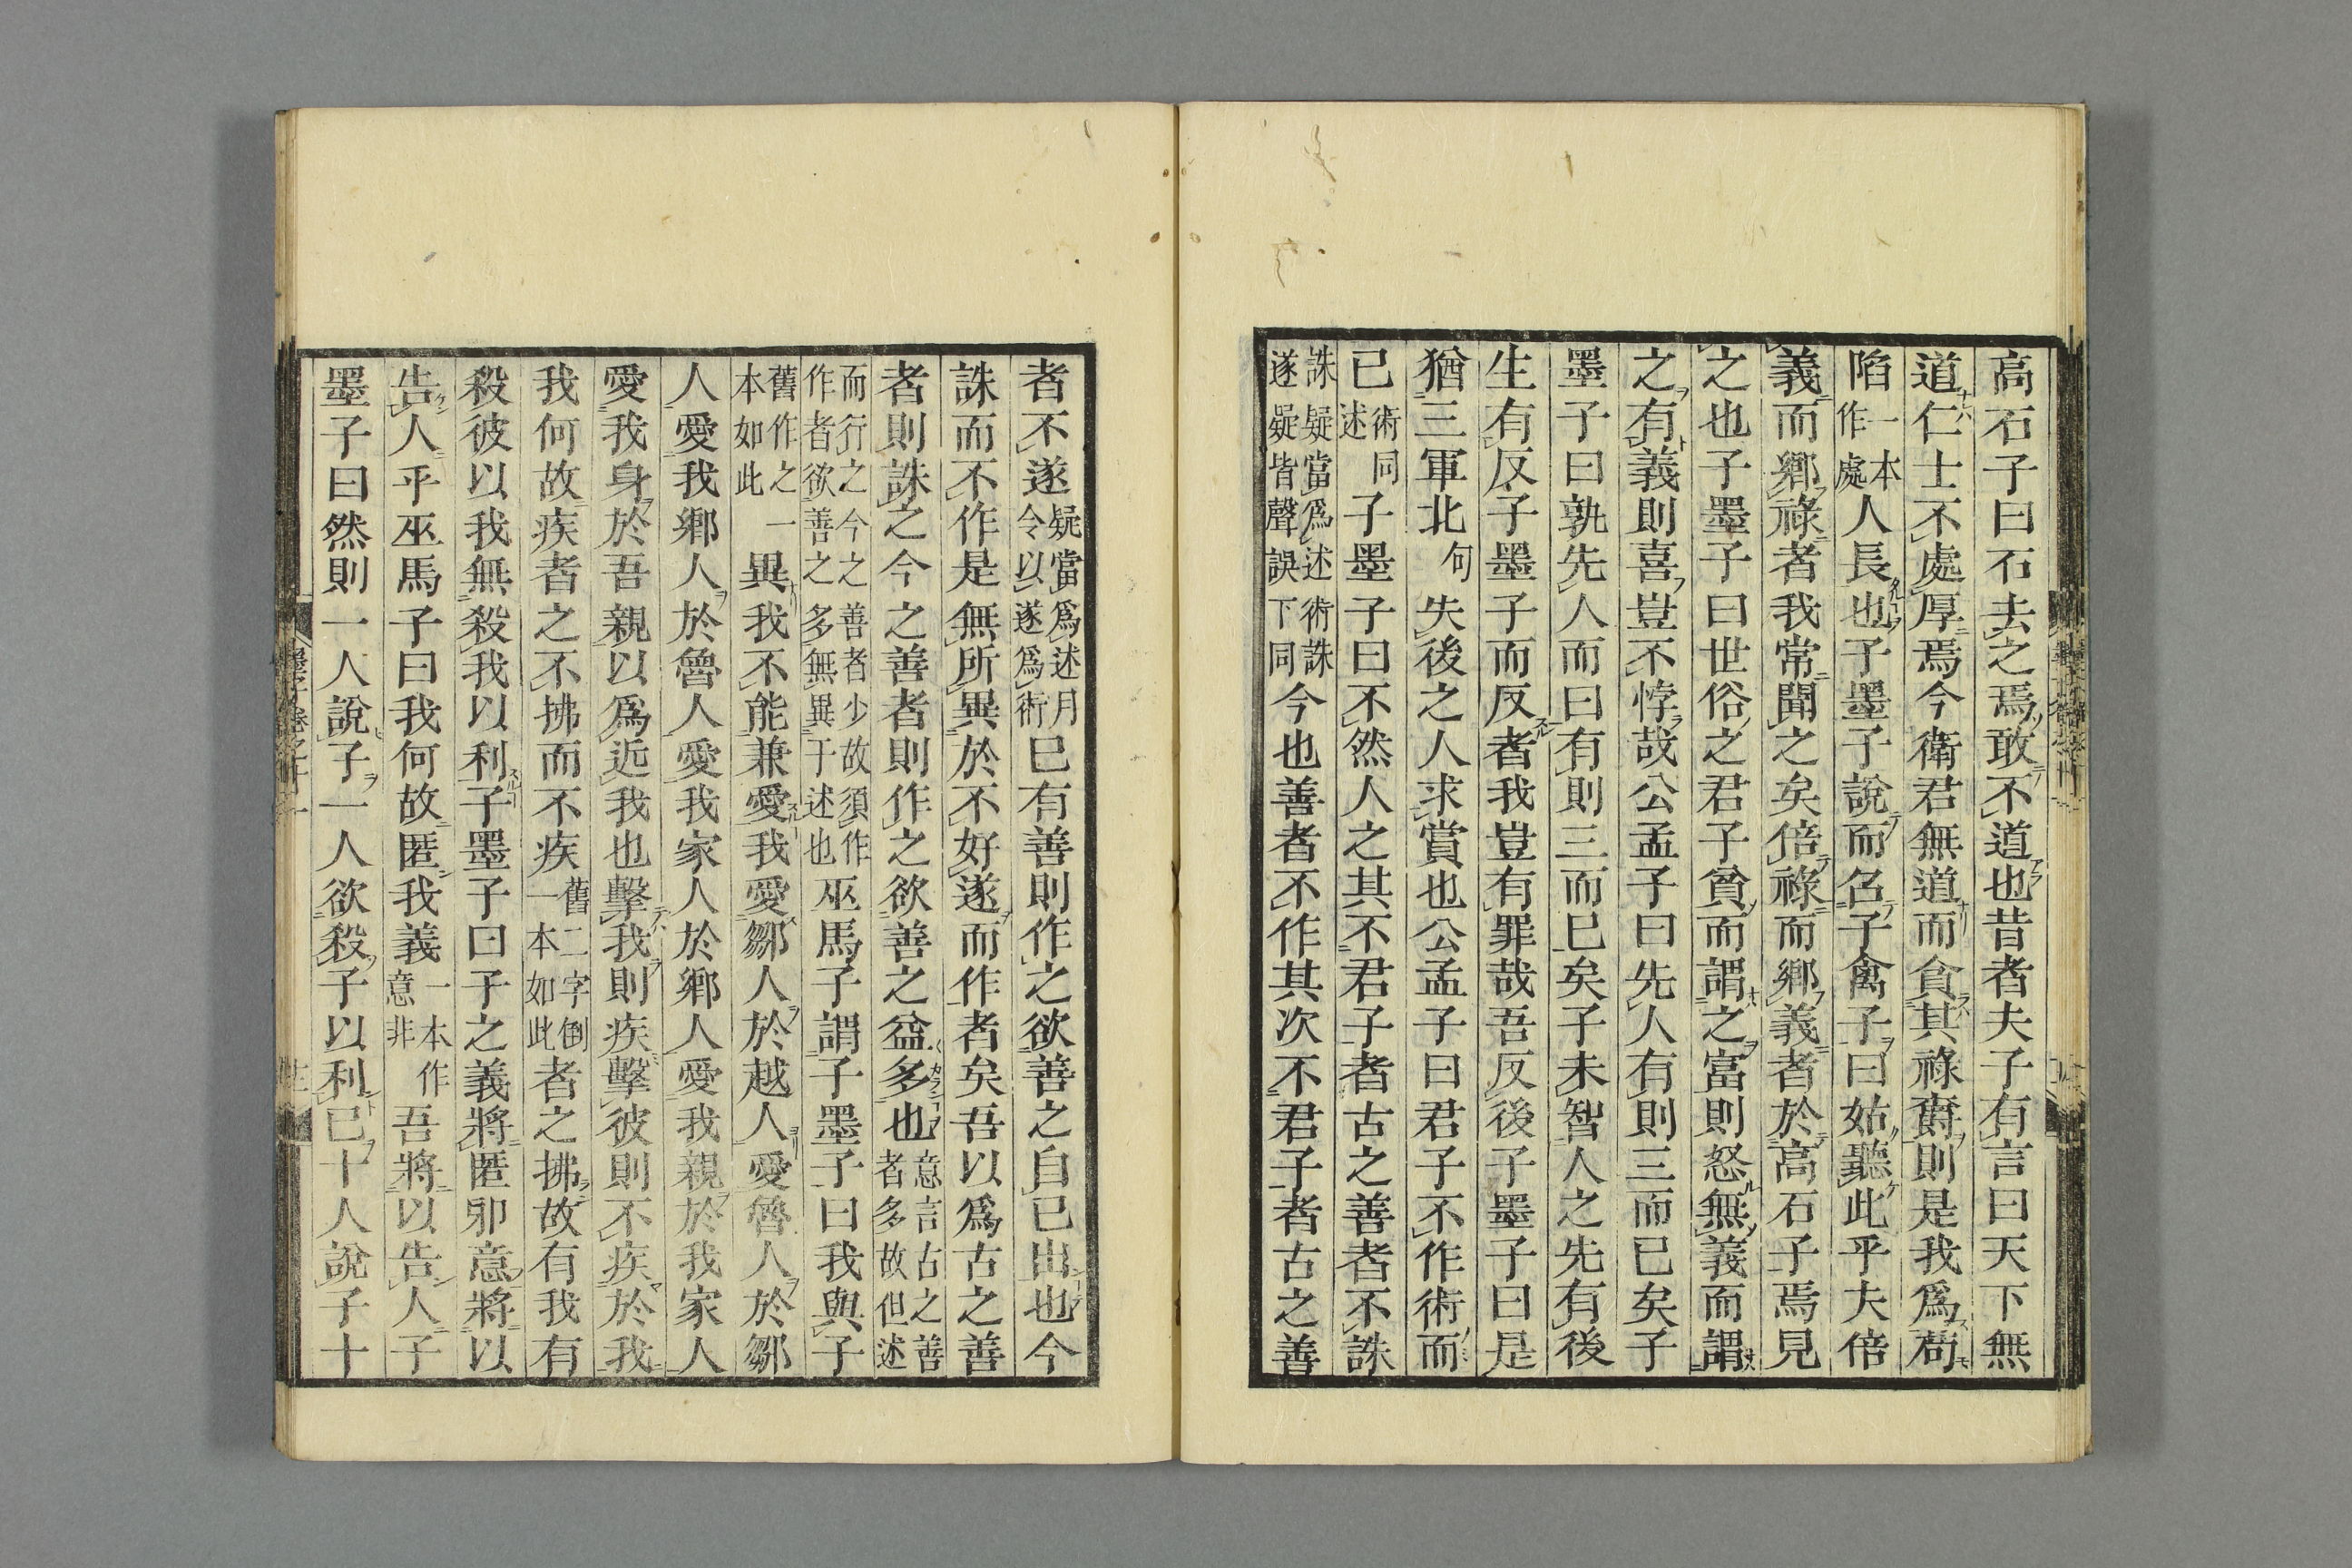 高石子曰石去之焉敢不道也昔者夫子有言曰天下無
道仁士不處厚焉今衛君無道而貪其祿爵則是我爲苟
陷一本作處人長也子墨子說而召子禽子曰姑聽此乎夫倍
義而鄉祿者我常聞之矣倍祿而鄉義者於高石子焉見
之也子墨子曰世俗之君子貧而謂之富則怒無義而謂
之有義則喜豈不悖哉公孟子曰先人有則三而已矣子
墨子曰孰先人而曰有則三而已矣子未智人之先有後
生有反子墨子而反者我豈有罪哉吾反後子墨子曰是
猶三軍北句失後之人求賞也公孟子曰君子不作術而
已術同述子墨子曰不然人之其不君子者古之善者不誅
誅疑當爲述術誅遂疑皆聲誤下同今也善者不作其次不君子者古之善
者不遂疑當爲述月令以遂爲術已有善則作之欲善之自已出也今
誅而不作是無所異於不好遂而作者矣吾以爲古之善
者則誅之今之善者則作之欲善之益多也意言古之善者多故但述
而行之今之善者少故須作作者欲善之多無異于述也巫馬子謂子墨子曰我與子
舊作之一本如此異我不能兼愛我愛鄒人於越人愛魯人於鄒
人愛我鄉人於魯人愛我家人於鄉人愛我親於我家人
愛我身於吾親以爲近我也擊我則疾擊彼則不疾於我
我何故疾者之不拂而不疾舊二字倒一本如此者之拂故有我有
殺彼以我無殺我以利子墨子曰子之義將匿邪意將以
告人乎巫馬子曰我何故匿我義一本作意非吾將以告人子
墨子曰然則一人說子一人欲殺子以利已十人說子十
墨子卷之十一